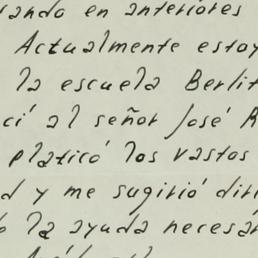 ando en anteriores
Actualmente estoy
la escuela Berlit
cí al señor José R
platicó los vastos
d y me sugirió diri
la ayuda necesar